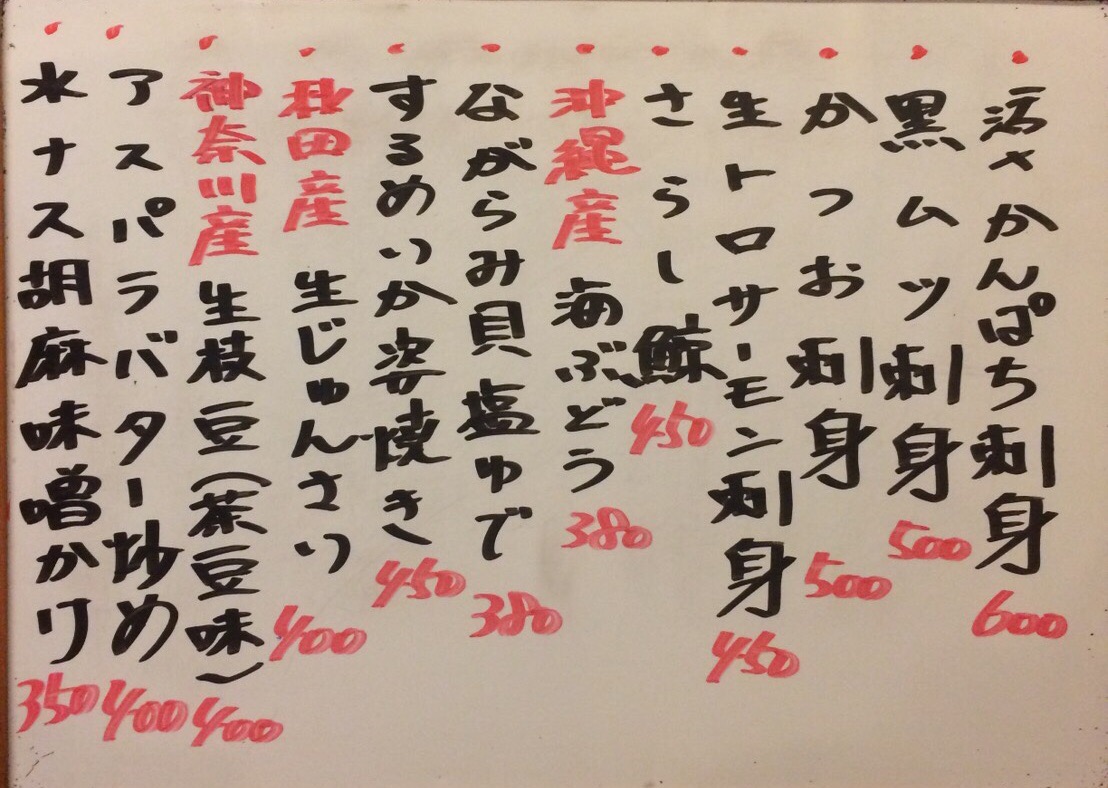 活〆かんぱち刺身 600
黒ムツ刺身 500
かつお刺身 500
生トロサーモン刺身 450
さらし鯨 450
沖縄産 海ぶどう 380
ながらみ貝塩ゆで 380
するめいか姿焼き 450
秋田産 生じゅんさい 400
神奈川産 生枝豆(茶豆味) 400
アスパラバター炒め 400
水ナス胡麻味噌かけ 350